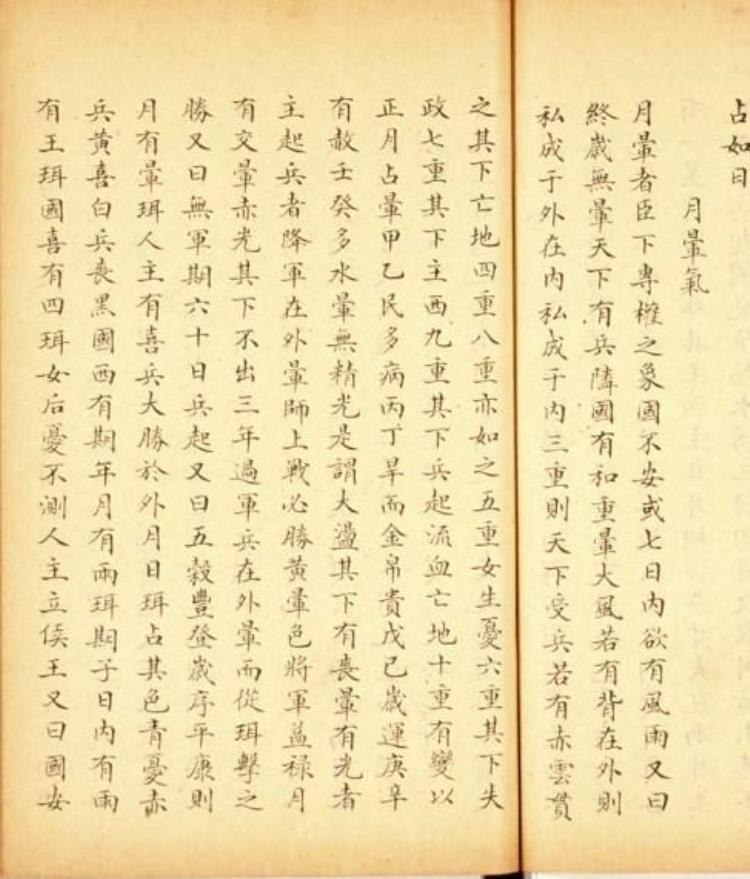 占如日
月暈氣
月暈者臣下專權之象國不安或七日內欲有風雨又曰
終歲無暈天下有兵隣國有和重暈大風若有背在外則
私成于外在內私成于內三重則天下受兵若有赤雲貫
之其下亡地四重八重亦如之五重女生憂六重其下失
政七重其下主西九重其下兵起流血亡地十重有變以
正月占暈甲乙民多病丙丁旱而金帛貴戊己歲運庚辛
有赦壬癸多水暈無精光是謂大盪其下有喪暈有光者
主起兵者降軍在外暈師上戰必勝黃暈色將軍益祿月
有交暈赤光其下不出三年過軍兵在外暈而從珥擊之
勝又曰無軍期六十日兵起又曰五穀豐登歲序平康則
月有暈珥人主有喜兵大勝於外月日珥占其色青憂赤
兵黃喜白兵喪黑國西有期年月有兩珥期子日內有雨
有王珥國喜有四珥女后憂不測人主立侯王又曰國安